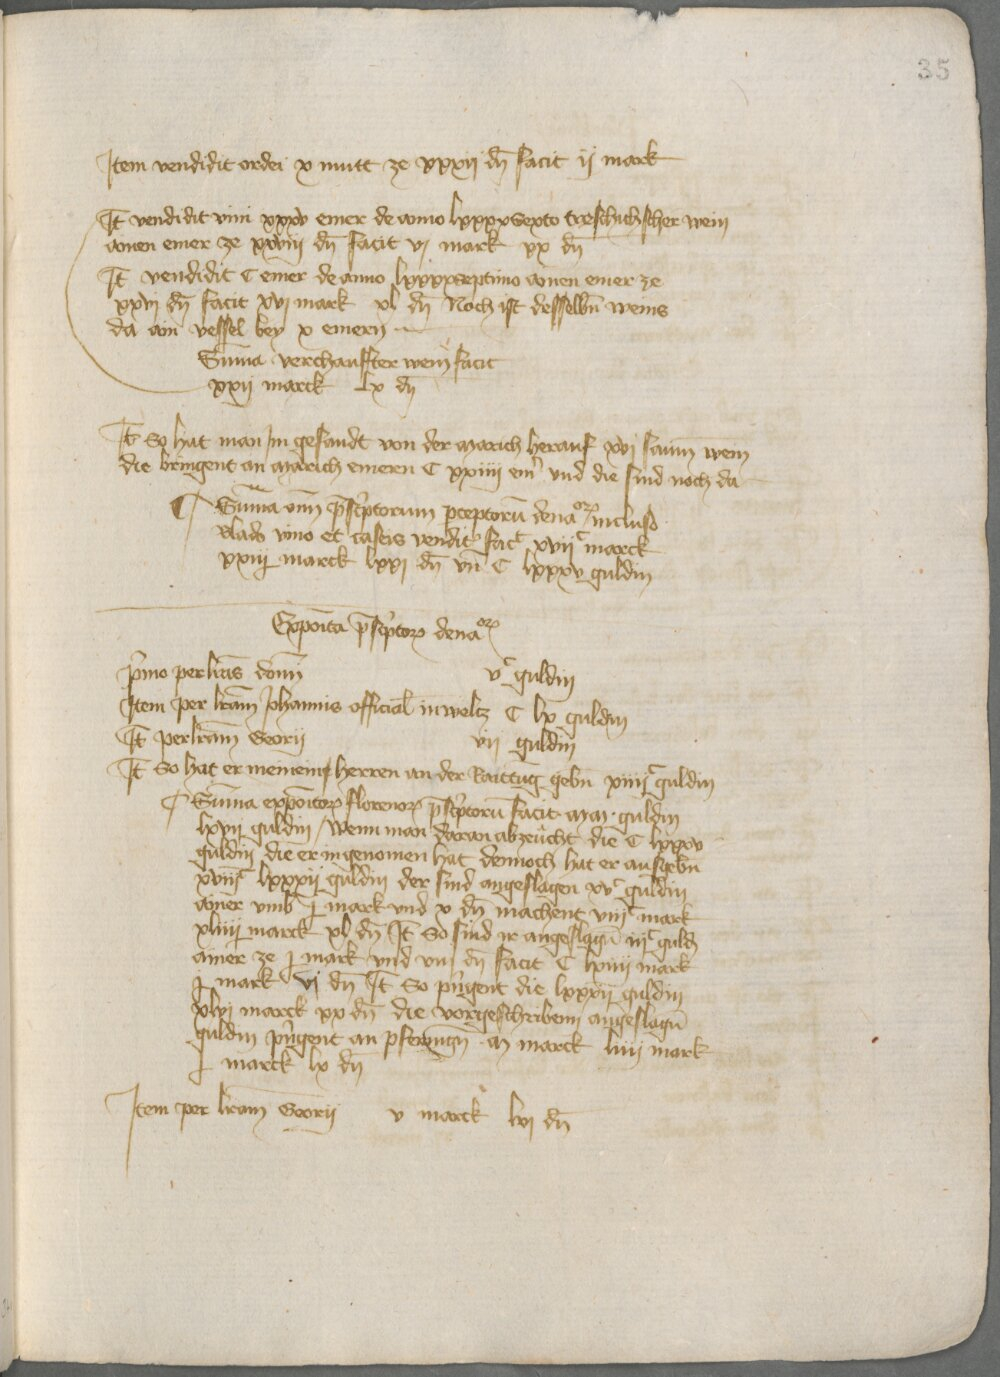 35
Item vendidit ordei x mutt ze xxxii dn̄ facit ij mark
It̄ vendidit vini xxxv emer de anno lxxxxsexto wein
ainen emer ze xxviij dn̄ facit vj mark xx dn̄
It̄ vendidit C emer de anno lxxxxseptimo ainen emer ze
xxvi dn̄ facit xvj mark xl dn̄ Noch ist desselbn̄ weins
da ain vessel bey x emern
Sum̄a verchauffter wein facit
xxij marck lx dn̄
It̄ So hat man Im gesandt von der March herauf xvj saum wein
die bringent an March emern C xxiiij em̄ vnd die sind noch da
Sum̄a om̄ p̄sc͛ptorum p͛ceptorū dena͛oꝝ incluso
vino et caseis vendit͛ fac͛t xvijC marck
xxiij marck lxxj dn̄ vn̄ C lxxxv guldin
Expoīta p̄sc͛ptoꝝ dena͛oꝝ
p͛mo per lrās dom̄i vC guldin
Item per lrām Johannis official̄ in weltz C lx guldin
It̄ per lrām Georij vij guldin
It̄ So hat er meinem herren an der Raittūg gebn̄ xiiijC guldin
Sum̄a expoītoꝝ florenoꝝ p̄sc͛ptorū facit MM guldin
lxvij guldin / Wenn man daran abzeucht die C lxxxv
guldin die er ingenomen hat dennoch hat er ausgebn̄
xviijC lxxxij guldin der sind angeslagen xvC guldin
ainer vmb j mark vnd x dn̄ machent viijC mark
xliiij marck xl dn̄ It̄ So sind ir angeslagn̄ iijC guld̄
ainer ze j mark vnd viij dn̄ facit C lxiiij mark
j mark vj dn̄ It̄ So p͛ngent die lxxxij guldin
xlvj marck xx dn̄ die vorgeschriben angeslagn̄
guldin p͛ngent an pfenngn̄ M marck liiij mark
j marck lx dn̄
Item per lrām Georij v marck lvj dn̄